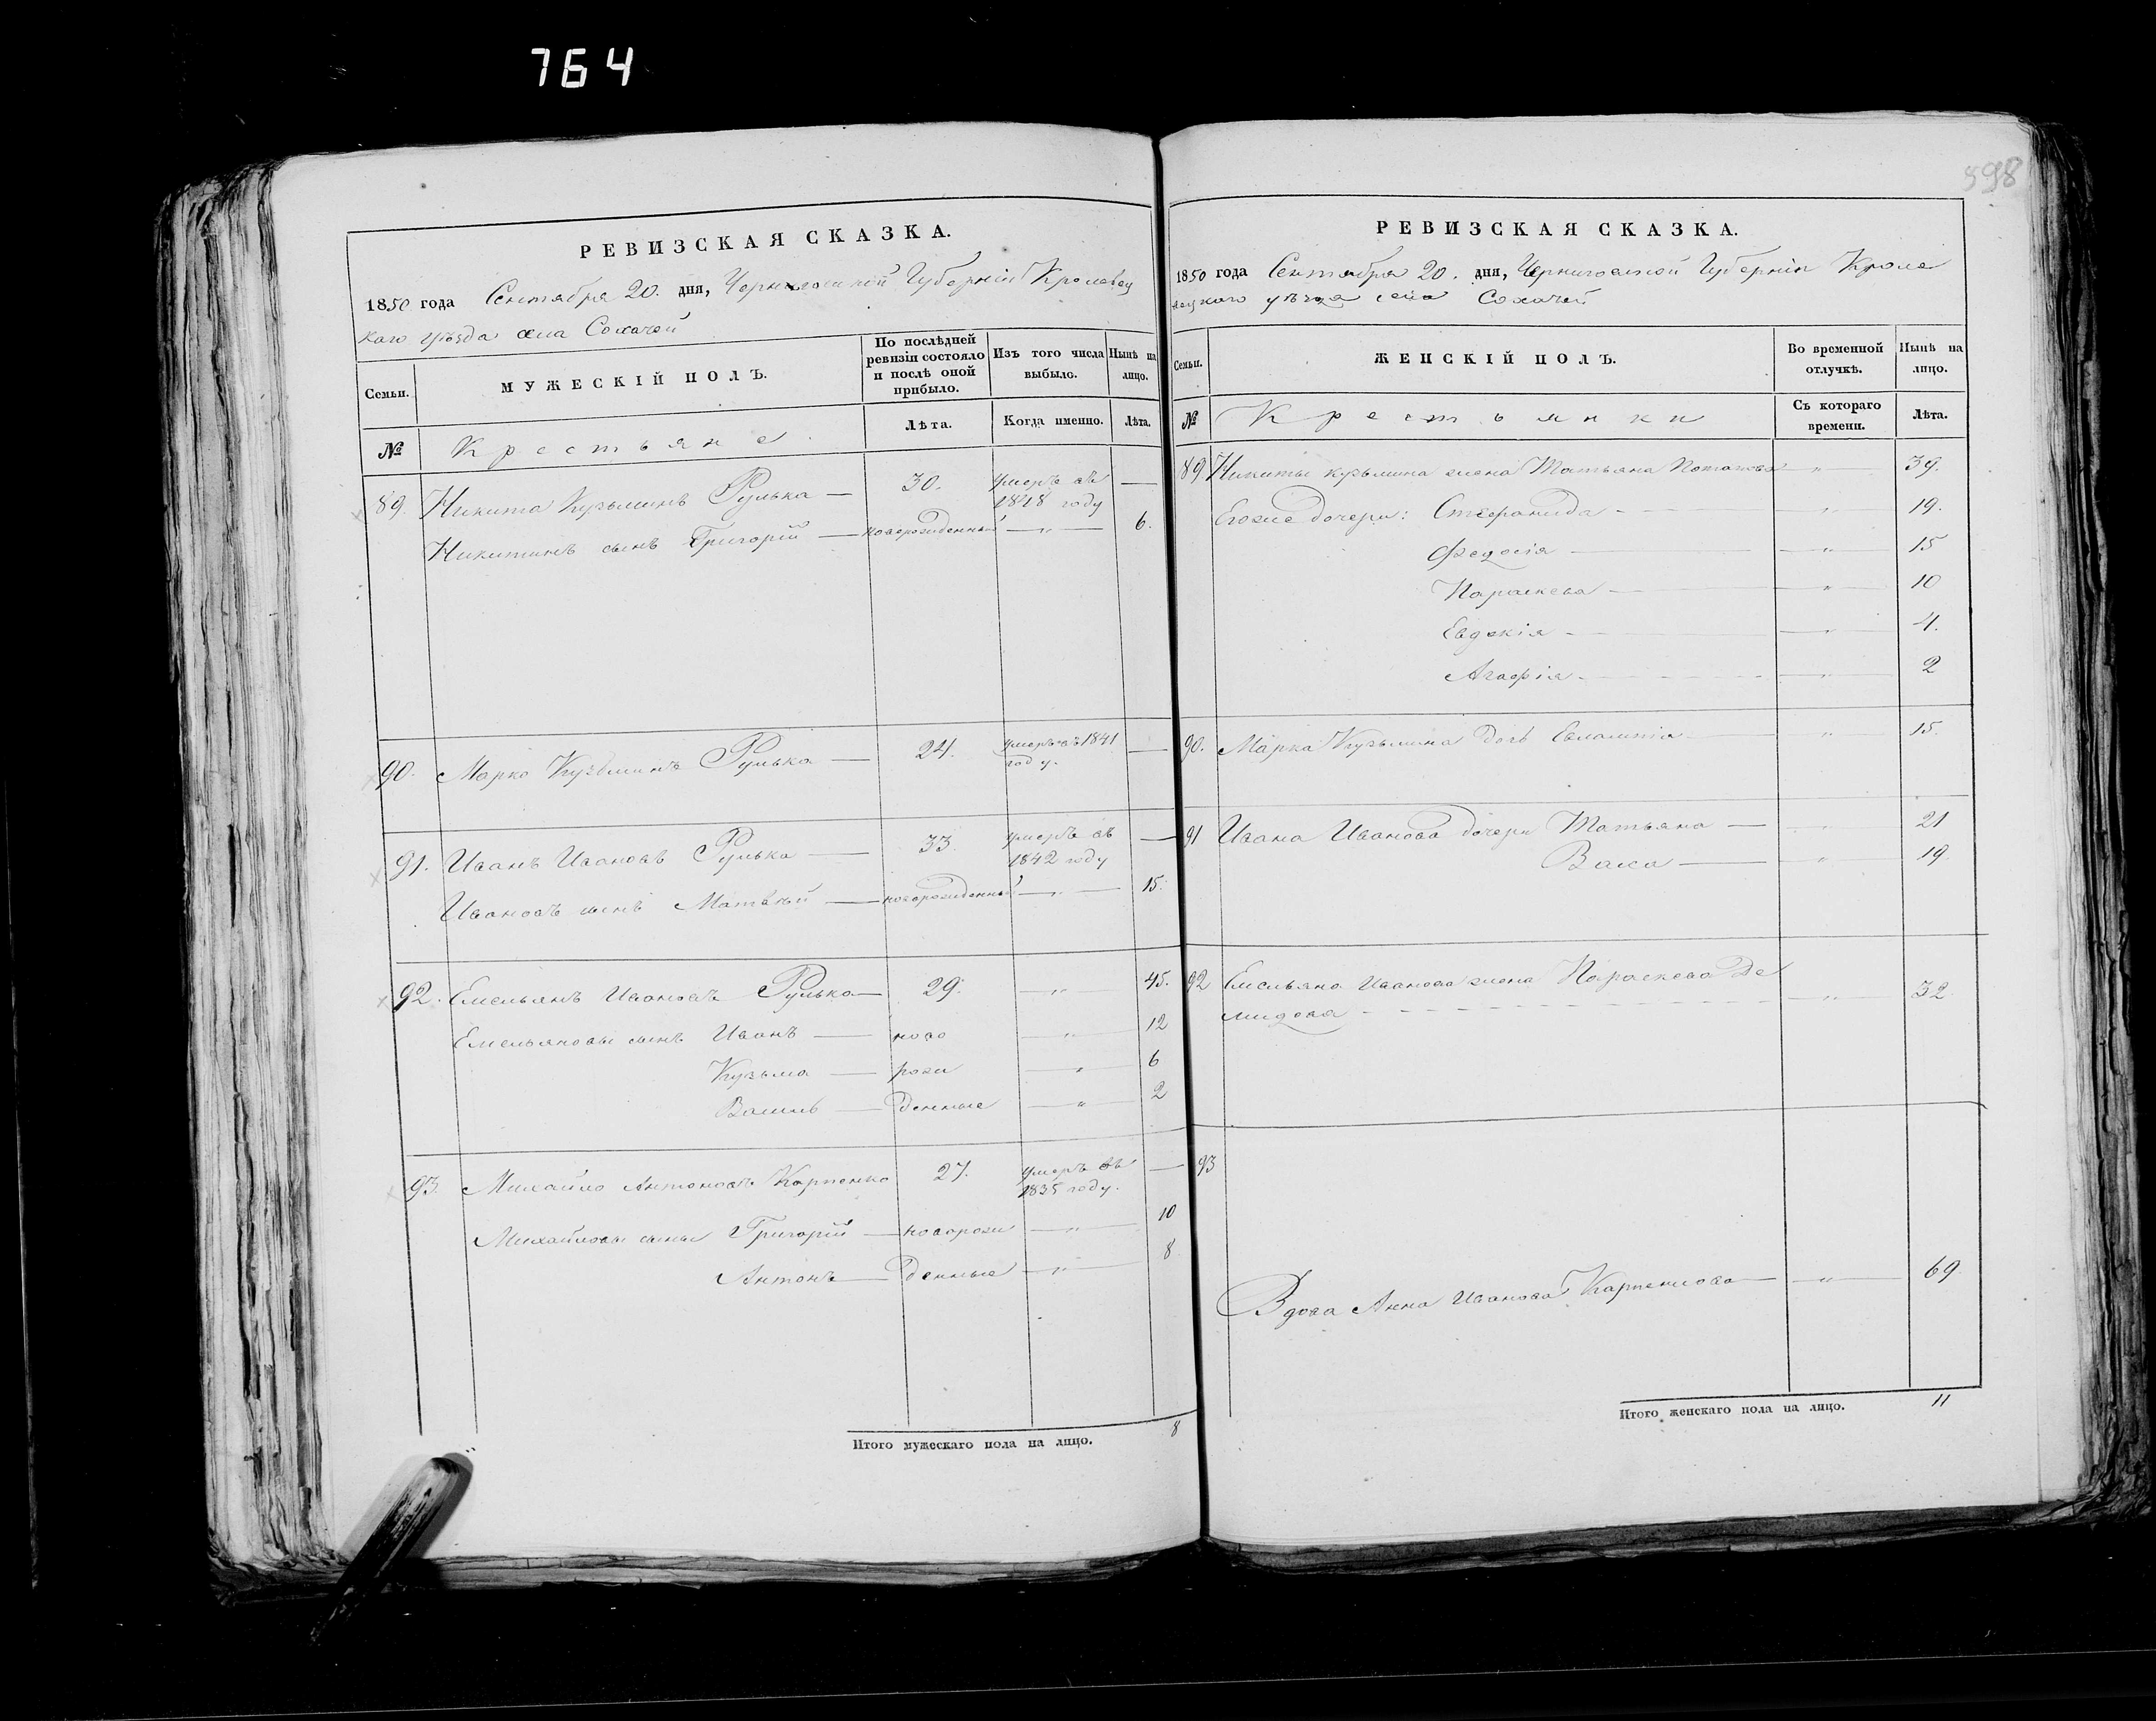 764
598
РЕВИЗСКАЯ СКАЗКА.
1850 года Сентября 20. дня, Черниговской Губерніи Кролевец
каго уѣзда села Сохачей
Семьи.
МУЖЕСКІЙ ПОЛЪ.
По послѣдней ревизіи состояло и послѣ оной прибыло.
Изъ того числа выбыло.
Нынѣ на лицо.
№
Крестьяне.
Лѣта.
Когда именно.
Лѣта.
89. Никита Кузьминъ Рулька — 30. умеръ въ 1848 году —
Никитинъ сынъ Григорій — новорожденный — „ — 6.
90. Марко Кузьминъ Рулька — 24. умеръ въ 1841 году. —
91. Иванъ Ивановъ Рулька — 33. умеръ въ 1842 году —
Ивановъ сынъ Матвѣй — новорожденный — „ — 15.
92. Емельянъ Ивановъ Рулька — 29. — „ — 45.
Емельяновы сынъ Иванъ — ново — „ — 12
Кузьма — рож — „ — 6
Василь — денные — „ — 2
93. Михайло Антоновъ Карпенко 27. умеръ въ 1835 году. —
Михайловы сыны Григорій — новорож — „ — 10
Антонъ — денные — „ — 8
Итого мужескаго пола на лицо. 8
РЕВИЗСКАЯ СКАЗКА.
1850 года Сентября 20. дня, Черниговской Губерніи Кроле
вецкаго уѣзда села Сохачей
Семьи.
ЖЕНСКІЙ ПОЛЪ.
Во временной отлучкѣ.
Нынѣ на лицо.
№
Крестьянки
Съ котораго времени.
Лѣта.
89 Никиты Кузьмина жена Татьяна Потапова — „ — 39.
Егоже дочери: Стефанида — „ — 19.
Федосія — „ — 15
Параскева — „ — 10
Евдокія — „ — 4.
Агафія — „ — 2
90. Марка Кузьмина дочь Евлампія — „ — 15.
91 Ивана Иванова дочери Татьяна — „ — 21
Васса — „ — 19.
92 Емельяна Иванова жена Параскева Де
мидова — „ — 32
93
Вдова Анна Иванова Карпенкова — „ — 69.
Итого женскаго пола на лицо. 11